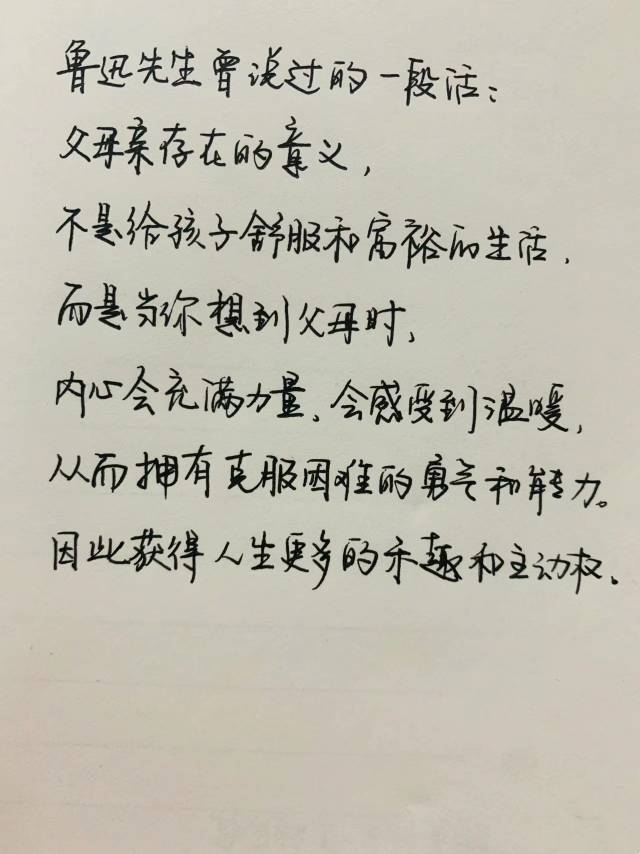 鲁迅先生曾说过的一段话：
父母亲存在的意义，
不是给孩子舒服和富裕的生活，
而是当你想到父母时，
内心会充满力量、会感受到温暖，
从而拥有克服困难的勇气和能力。
因此获得人生更多的乐趣和主动权。